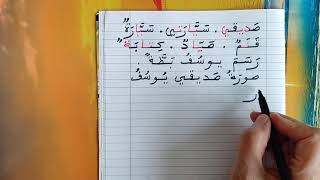 صَديقي . سَيّارَتي . سَيّارَةٌ
قَلَمٌ . صَيّادٌ . كِتابَةٌ
رَسَمَ يوسُفُ بَطَّةً .
صورَةُ صَديقي يُوسُفُ
ر